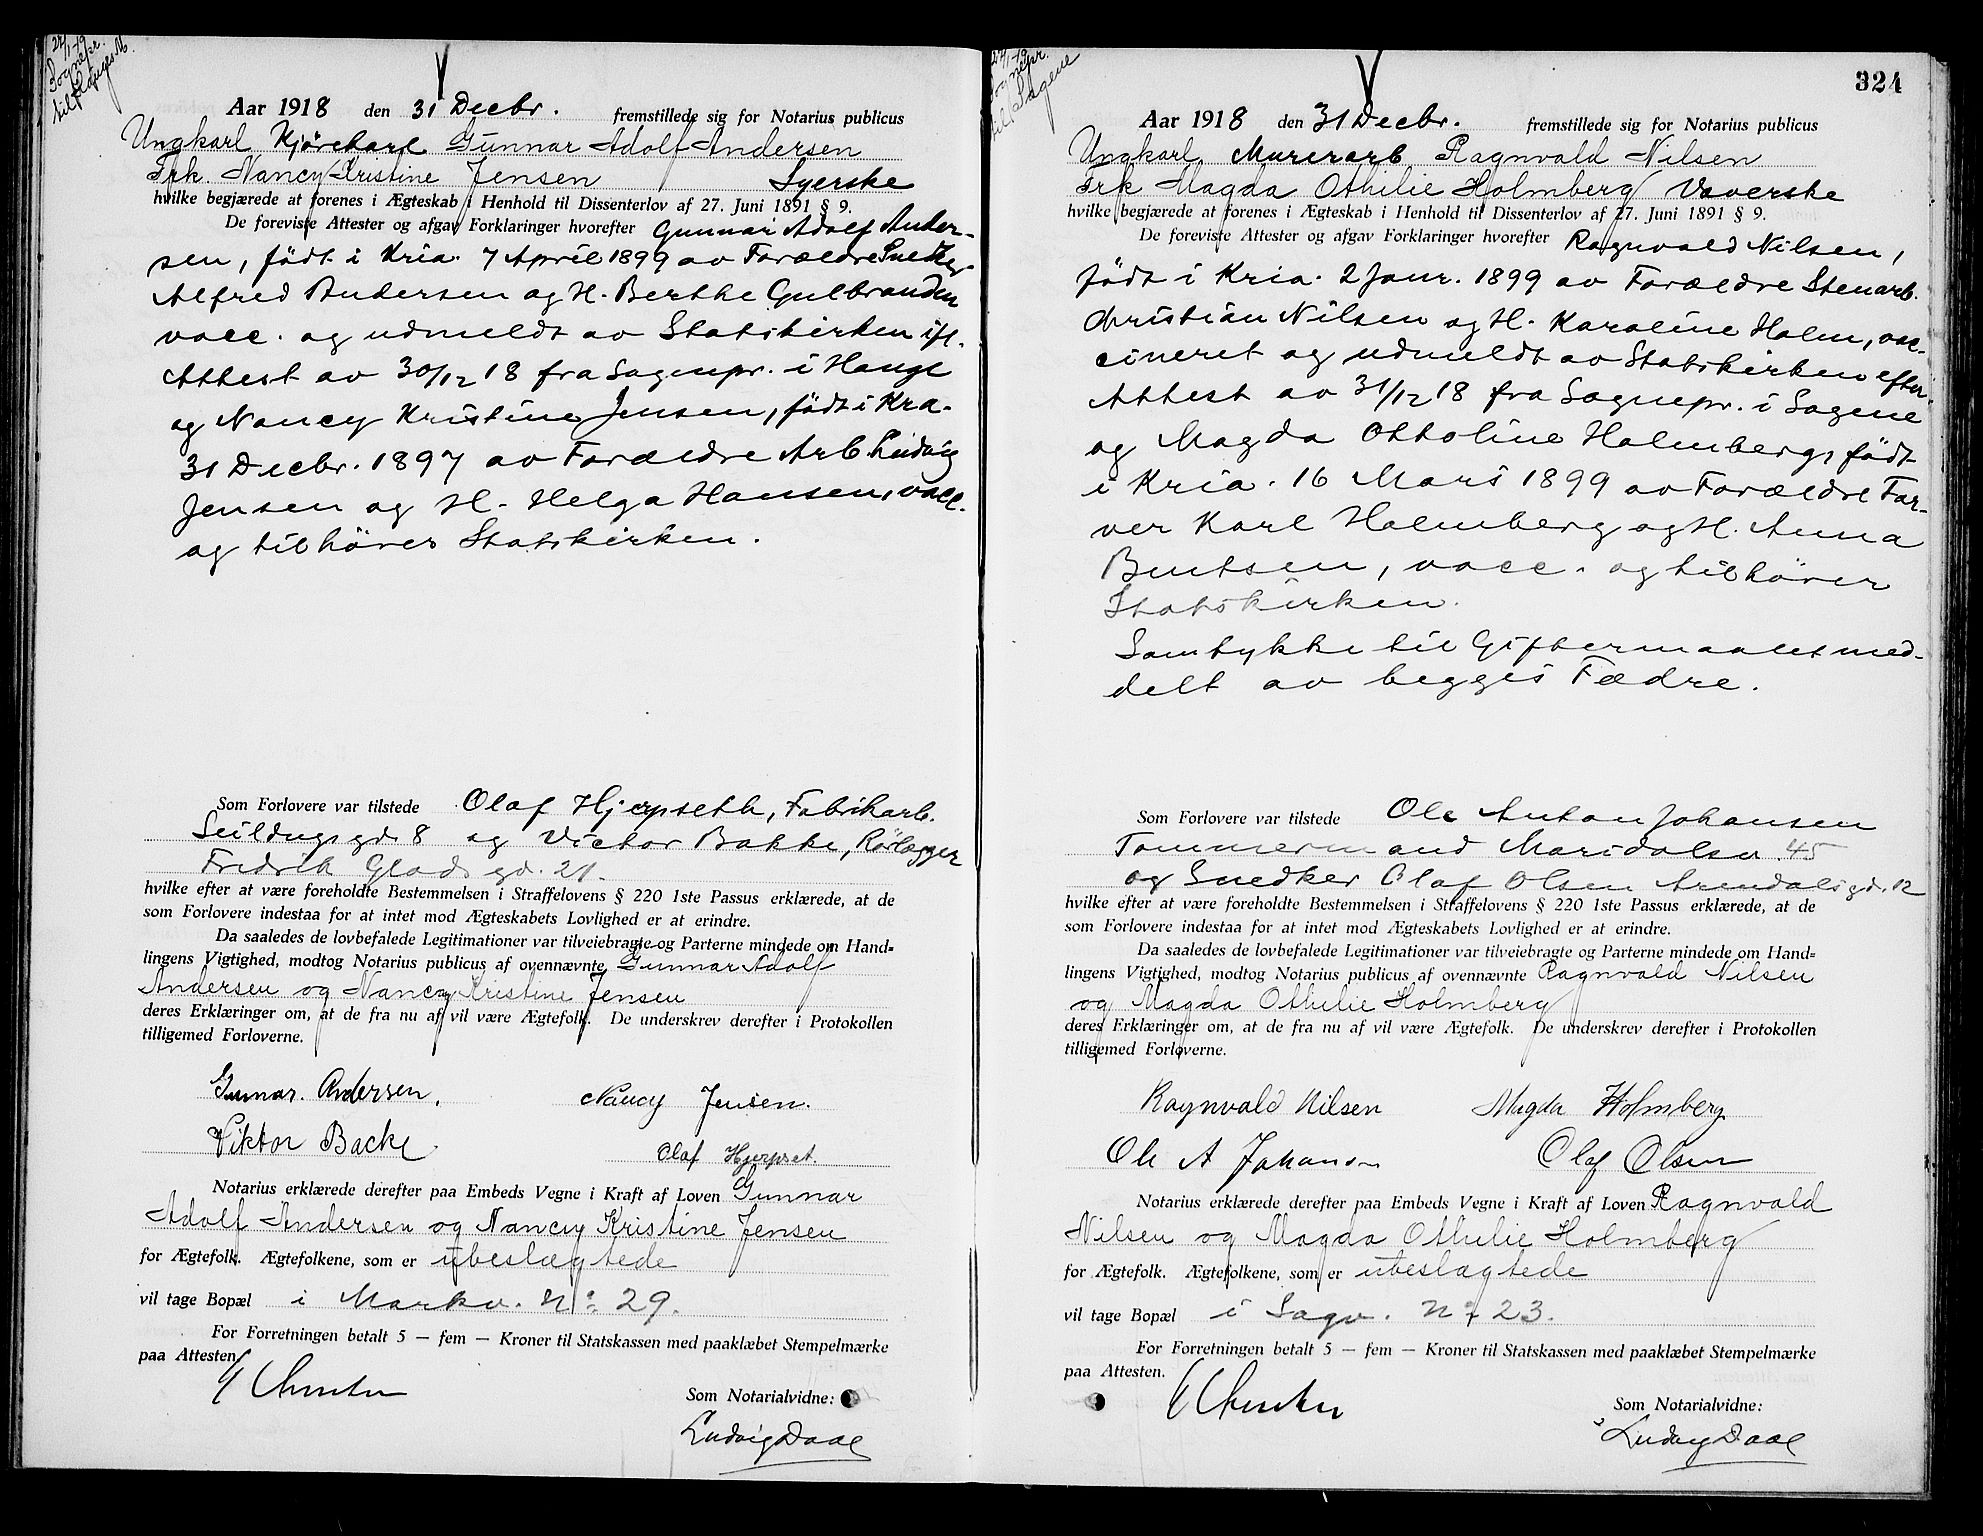 27/1-19
Sognepr.
til Hauges M.
Aar 1918 den 31 Decbr. fremstillede sig for Notarius publicus
Ungkarl Kjørekarl Gunnar Adolf Andersen
Frk. Nancy Kristine Jensen Syerske
hvilke begjærede at forenes i Ægteskab i Henhold til Dissenterlov af 27. Juni 1891 § 9.
De foreviste Attester og afgav Forklaringer hvorefter Gunnar Adolf Ander-
sen, født i Kria. 7 April 1899 av Forældre Snedker
Alfred Andersen og H. Berthe Gulbrandsen
vacc. og udmeldt av Statskirken ifl.
Attest av 30/12 18 fra Sognepr. i Hauge
og Nancy Kristine Jensen, født i Kra.
31 Decbr. 1897 av Forældre Arb. Ludvig
Jensen og H. Helga Hansen, vacc.
og tilhører Statskirken.
Som Forlovere var tilstede Olaf Hjerpseth, Fabrikarb.
Seildugsgd. 8 og Victor Bakke, Rørlægger
Fredrik Glads gd. 21.
hvilke efter at være foreholdte Bestemmelsen i Straffelovens § 220 1ste Passus erklærede, at de
som Forlovere indestaa for at intet mod Ægteskabets Lovlighed er at erindre.
Da saaledes de lovbefalede Legitimationer var tilveiebragte og Parterne mindede om Hand=
lingens Vigtighed, modtog Notarius publicus af ovennævnte Gunnar Adolf
Andersen og Nancy Kristine Jensen
deres Erklæringer om, at de fra nu af vil være Ægtefolk. De underskrev derefter i Protokollen
tilligemed Forloverne.
Gunnar. Andersen. Nancy Jensen.
Viktor Backe Olaf Hjerpset.
Notarius erklærede derefter paa Embeds Vegne i Kraft af Loven Gunnar
Adolf Andersen og Nancy Kristine Jensen
for Ægtefolk. Ægtefolkene, som er ubeslægtede
vil tage Bopæl i Markv. No. 29.
For Forretningen betalt 5 — fem — Kroner til Statskassen med paaklæbet Stempelmærke
paa Attesten.
Som Notarialvidne:
Ludvig Daae
27/1-19
Sognepr.
til Sagene
324
Aar 1918 den 31 Decbr. fremstillede sig for Notarius publicus
Ungkarl Murerarb Ragnvald Nilsen
Frk Magda Othilie Holmberg Væverske
hvilke begjærede at forenes i Ægteskab i Henhold til Dissenterlov af 27. Juni 1891 § 9.
De foreviste Attester og afgav Forklaringer hvorefter Ragnvald Nilsen,
født i Kria. 2 Janr. 1899 av Forældre Stenarb.
Christian Nilsen og H. Karoline Holm, vac-
cineret og udmeldt av Statskirken efter
Attest av 31/12 18 fra Sognepr. i Sagene
og Magda Ottoline Holmberg, født
i Kria. 16 Mars 1899 av Forældre Far-
ver Karl Holmberg og H. Anna
Bentsen, vacc. og tilhører
Statskirken.
Samtykke til Giftermaalet med-
delt av begges Fædre.
Som Forlovere var tilstede Ole Anton Johansen
Tømmermand Maridalsv. 45
og Snedker Olaf Olsen Arendalsgd. 12
hvilke efter at være foreholdte Bestemmelsen i Straffelovens § 220 1ste Passus erklærede, at de
som Forlovere indestaa for at intet mod Ægteskabets Lovlighed er at erindre.
Da saaledes de lovbefalede Legitimationer var tilveiebragte og Parterne mindede om Hand=
lingens Vigtighed, modtog Notarius publicus af ovennævnte Ragnvald Nilsen
og Magda Othilie Holmberg
deres Erklæringer om, at de fra nu af vil være Ægtefolk. De underskrev derefter i Protokollen
tilligemed Forloverne.
Ragnvald Nilsen Magda Holmberg
Ole A Johansen Olaf Olsen
Notarius erklærede derefter paa Embeds Vegne i Kraft af Loven Ragnvald
Nilsen og Magda Othilie Holmberg
for Ægtefolk. Ægtefolkene, som er ubeslægtede
vil tage Bopæl i Sagv. No 23.
For Forretningen betalt 5 — fem — Kroner til Statskassen med paaklæbet Stempelmærke
paa Attesten.
Som Notarialvidne:
Ludvig Daae